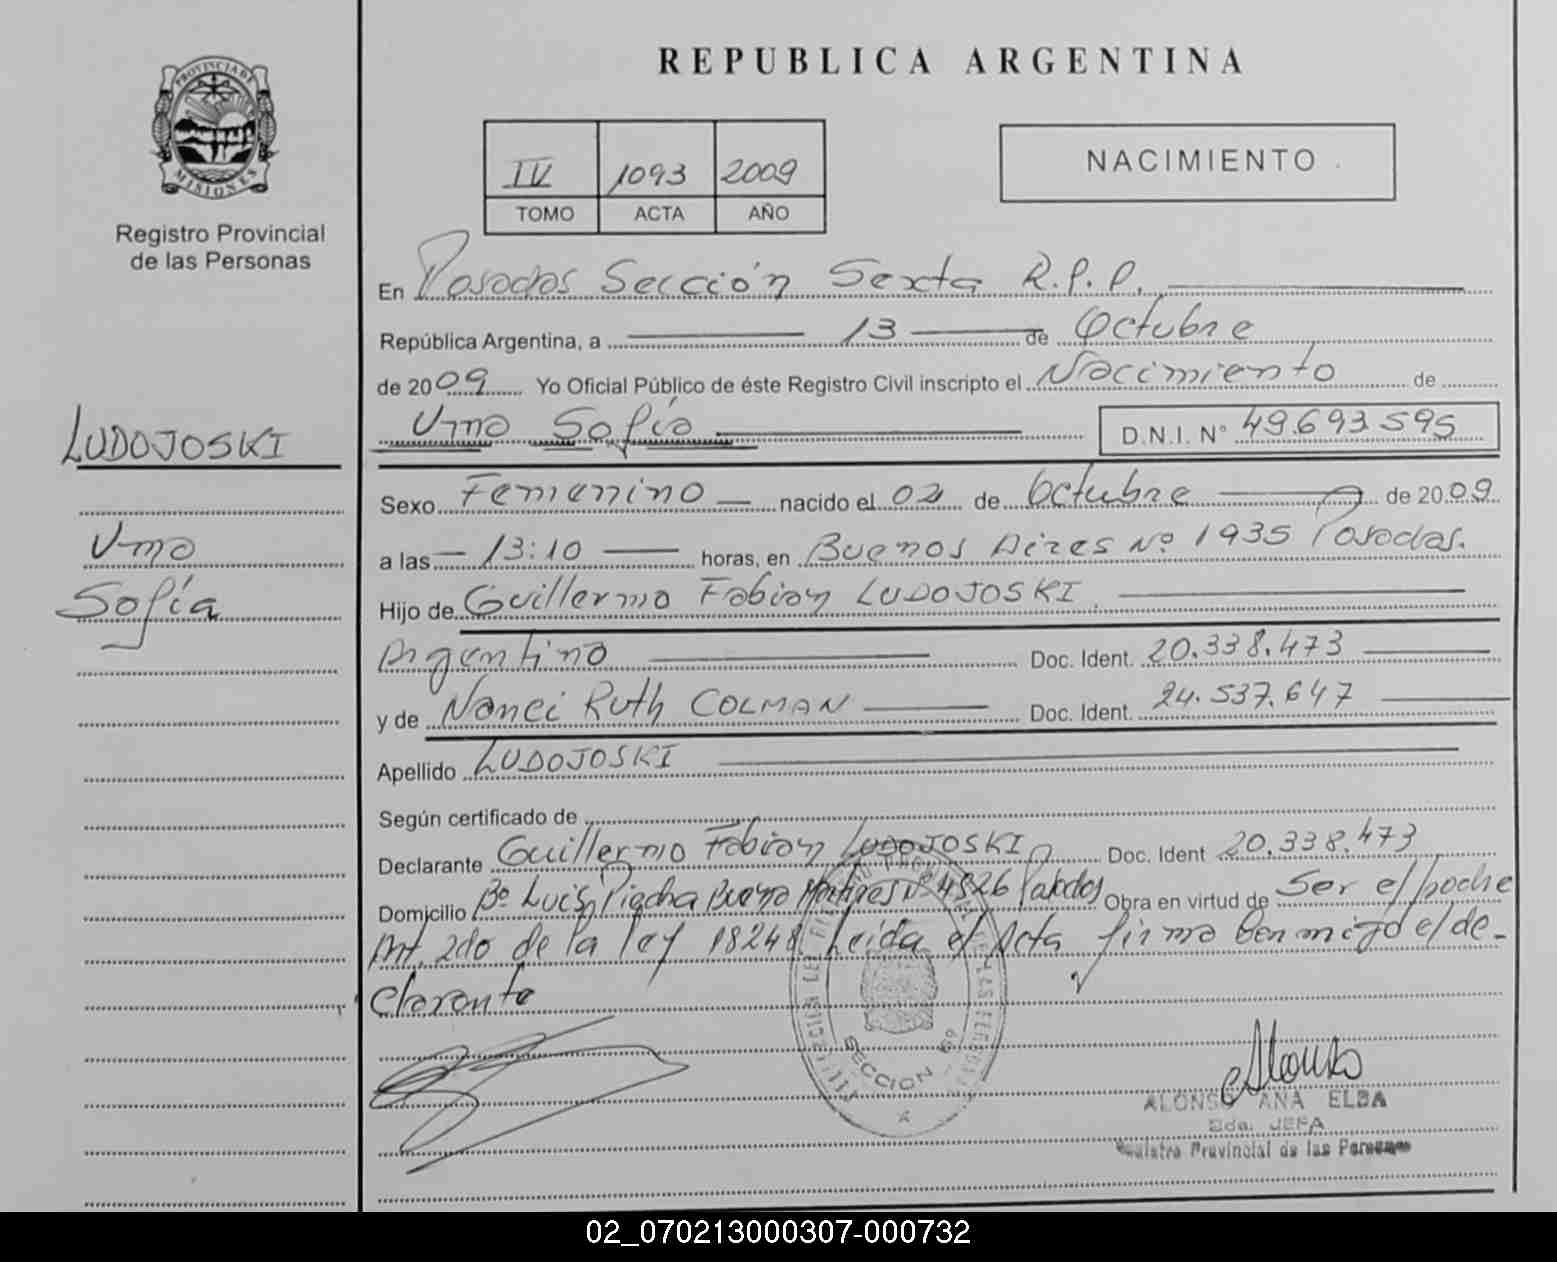 PROVINCIA DE
MISIONES
Registro Provincial
de las Personas
LUDOJOSKI
Uma
Sofía
REPUBLICA ARGENTINA
IV 1093 2009
TOMO ACTA AÑO
NACIMIENTO
En Posadas Sección Sexta R.P.P.
República Argentina, a 13 de Octubre
de 2009 Yo Oficial Público de éste Registro Civil inscripto el Nacimiento de
Uma Sofía D.N.I. N° 49.693.595
Sexo Femenino nacido el 02 de Octubre de 2009
a las 13:10 horas, en Buenos Aires Nº 1935 Posadas.
Hijo de Guillermo Fabian LUDOJOSKI
Argentino Doc. Ident. 20.338.473
y de Nanci Ruth COLMAN Doc. Ident. 24.537.647
Apellido LUDOJOSKI
Según certificado de
Declarante Guillermo Fabian LUDOJOSKI Doc. Ident 20.338.473
Domicilio Bº Luis Piedra Buena Nº 4826 Posadas Obra en virtud de Ser el padre
Art. 2do de la ley 18248 Leida el Acta firma Conmigo el de-
clarante
SECCION 6ª
ALONSO ANA ELBA
2da. JEFA
Registro Provincial de las Personas
02_070213000307-000732